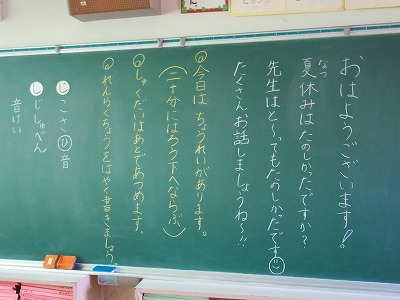 おはようございます!
夏休みはたのしかったですか?
なつ
先生はと〜ってもたのしかったです
たくさんお話しましょうね〜!!
◎今日は ちょうれいがあります。
(二十分にはろう下へならぶ)
◎しゅくだいはあとであつめます。
◎れんらくちょうをはやく書きましょう。
じこさひ音
しじしゃべん
音けい